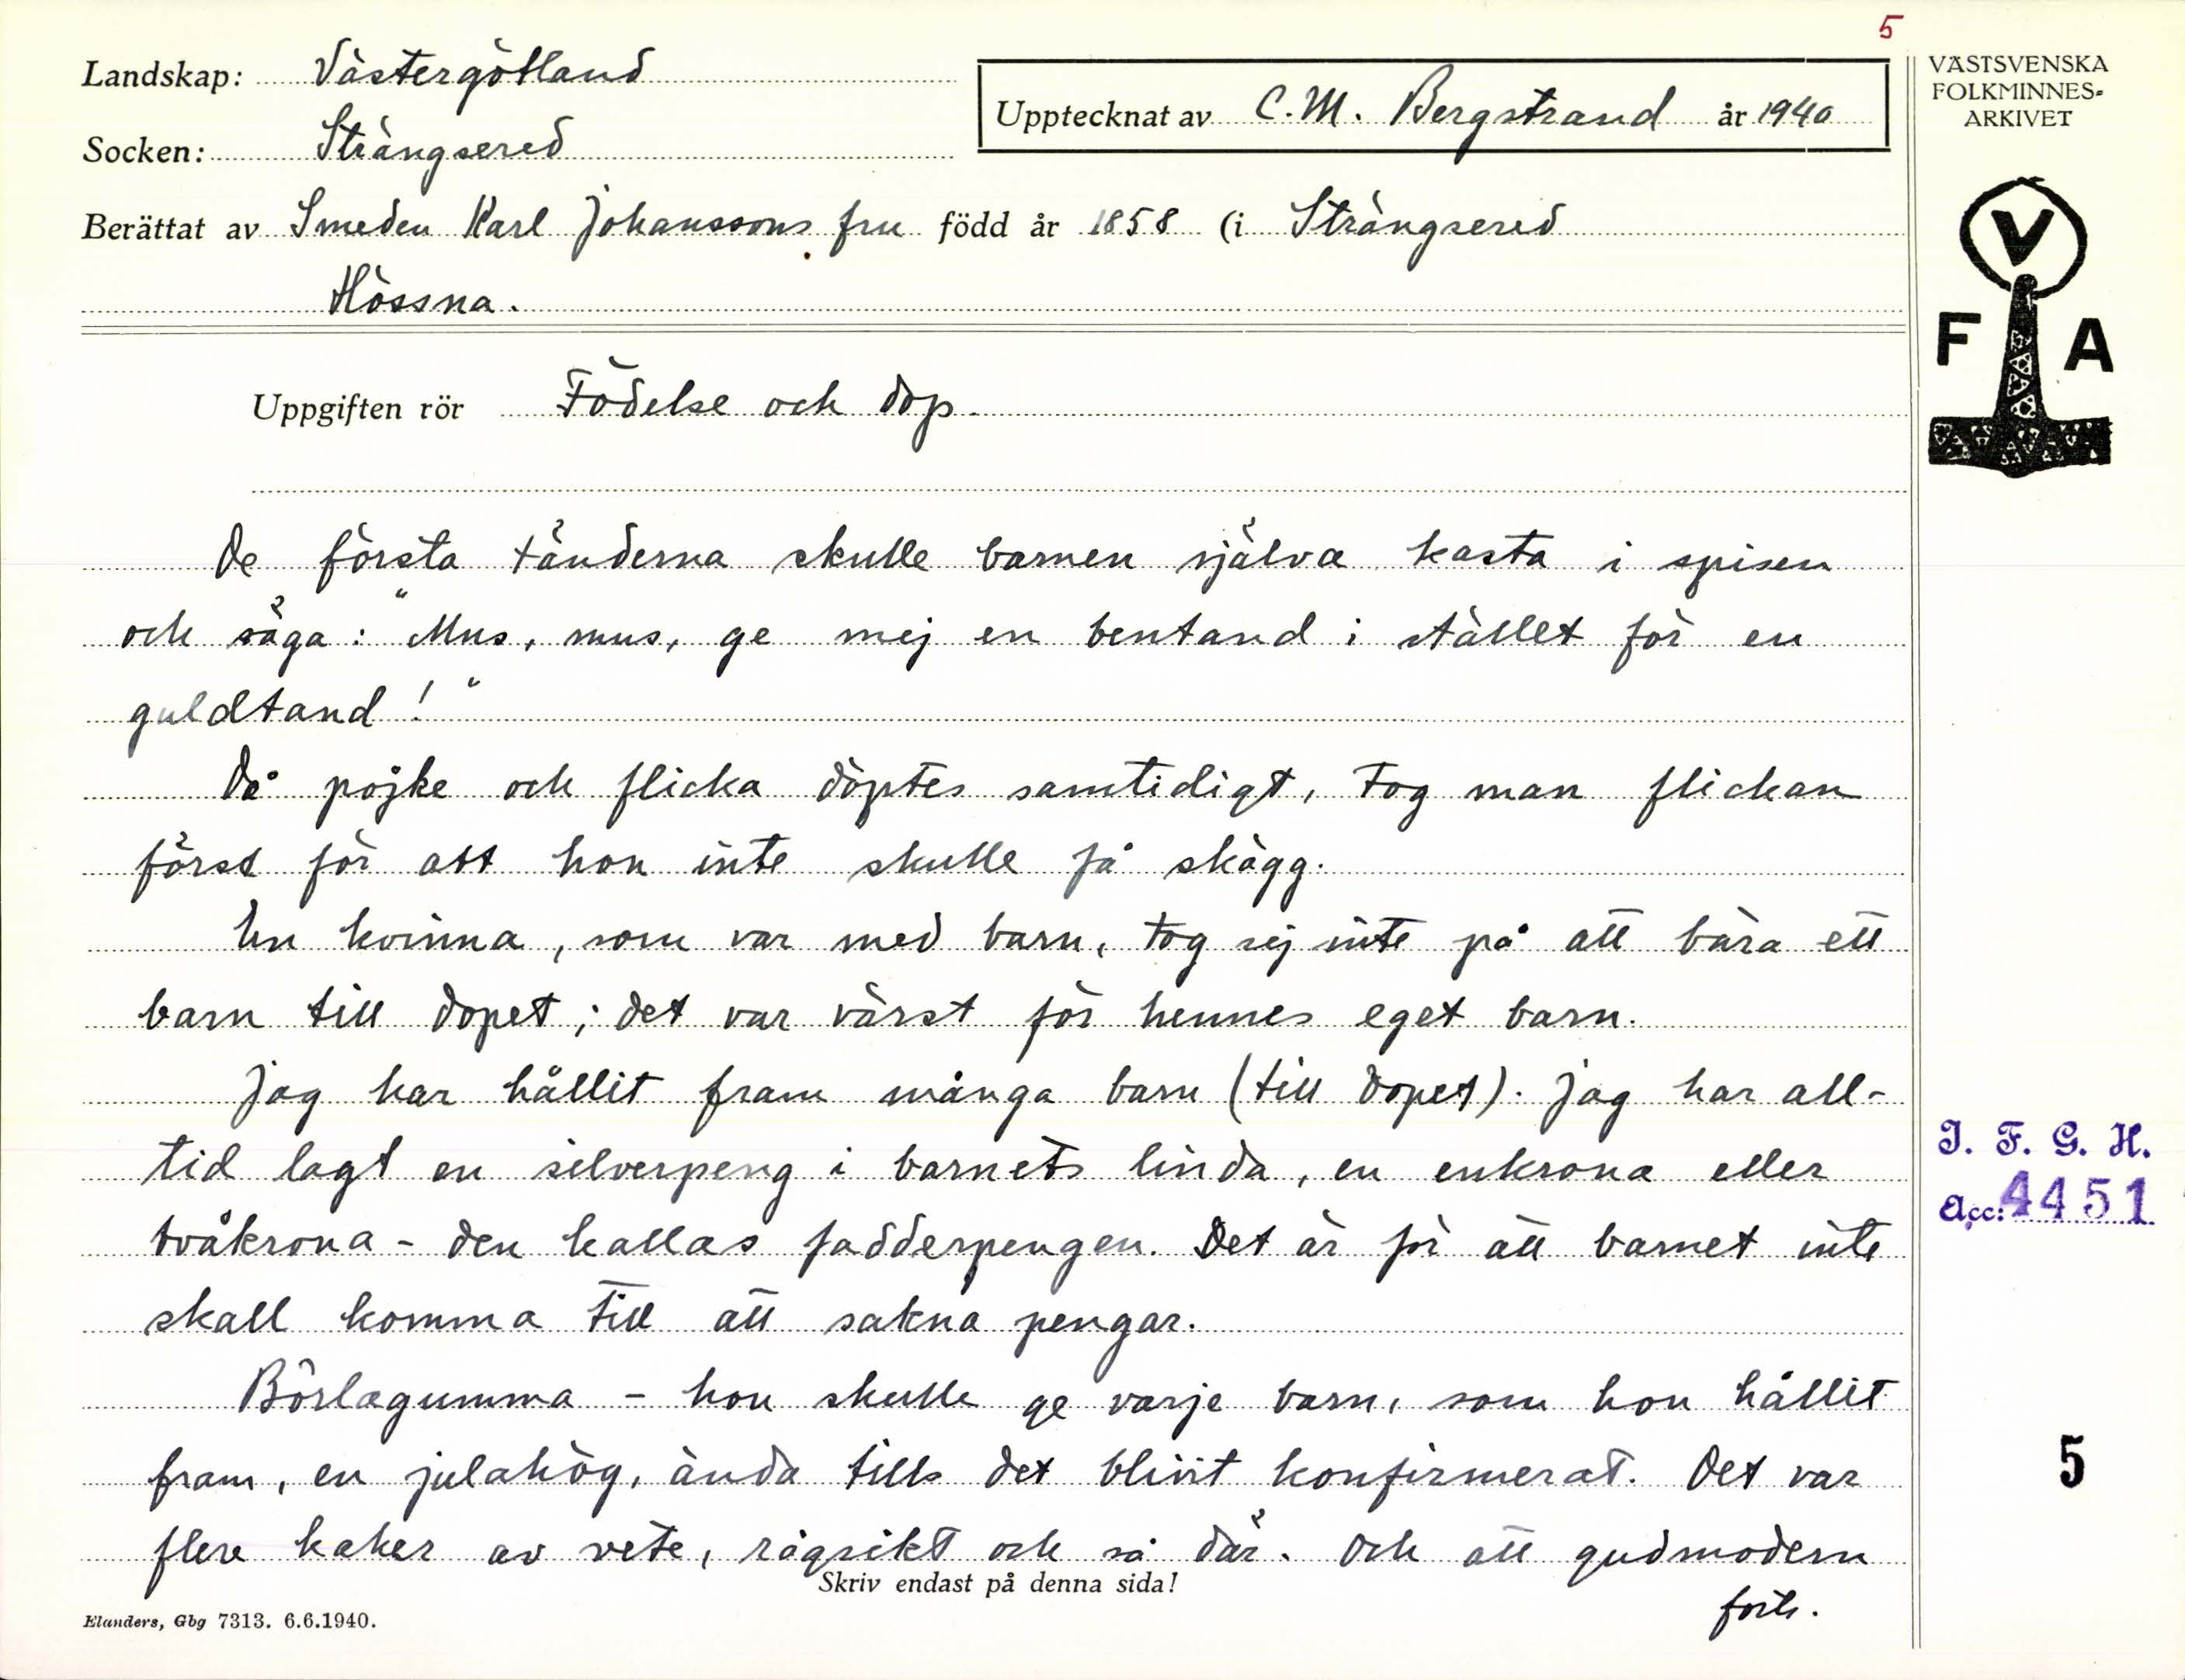 5
Landskap: Västergötland
Upptecknat av C. M. Bergstrand år 1940
Socken: Strängsered
Berättat av Smeden Karl Johanssons fru född år 1858 (i Strängsered
Hössna.
Uppgiften rör Födelse och dop.
De första tänderna skulle barnen själva kasta i spisen
och säga: "Mus, mus, ge mej en bentand i stället för en
guldtand!"
Då pojke och flicka döptes samtidigt, tog man flickan
först för att hon inte skulle få skägg.
En kvinna, som var med barn, tog sej inte på att bära ett
barn till dopet; det var värst för hennes eget barn.
Jag har hållit fram många barn (till dopet). Jag har all-
tid lagt en silverpeng i barnets linda, en enkrona eller
tvåkrona - den kallas fadderpengen. Det är för att barnet inte
skall komma till att sakna pengar.
Börlagumma - hon skulle ge varje barn, som hon hållit
fram, en julahög, ända tills det blivit konfirmerat. Det var
flere kaker av vete, rågsikt och så där. Och att gudmodern
Skriv endast på denna sida!
forts.
Elanders, Gbg 7313. 6.6.1940.
VÄSTSVENSKA
FOLKMINNES-
ARKIVET
V
F A
I. F. G. H.
Acc: 4451
5